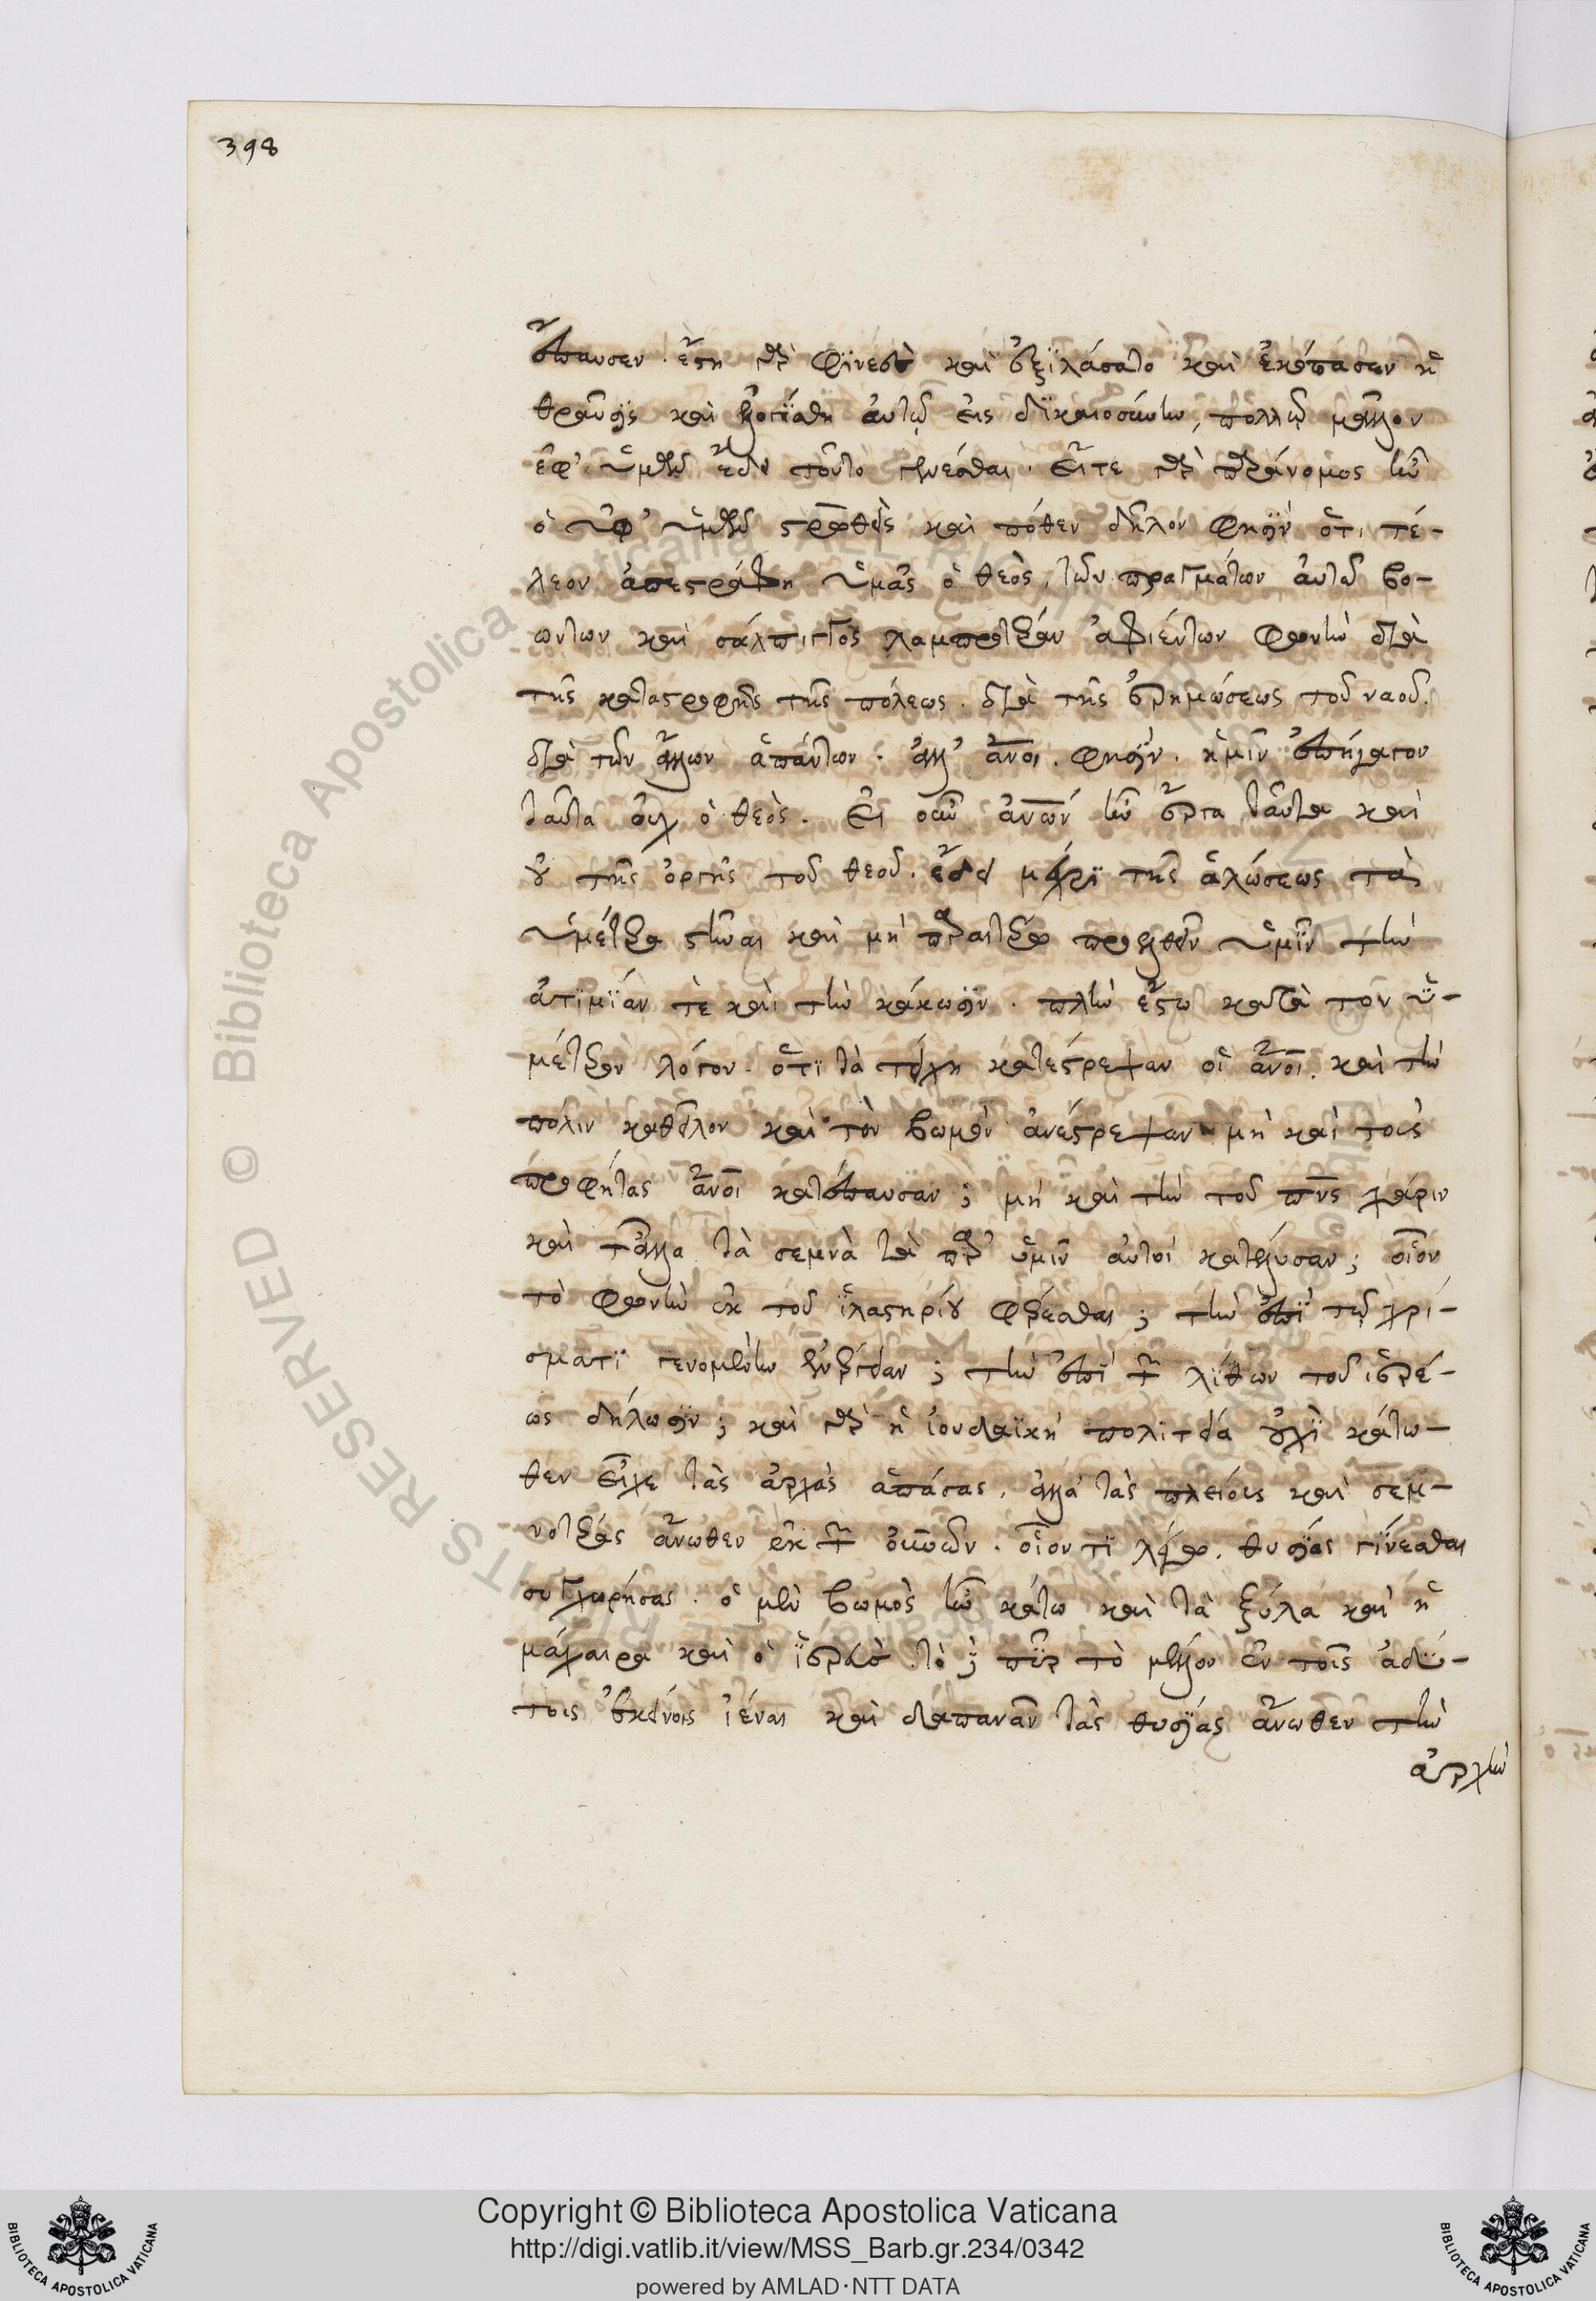 398
ἔπαυσεν. ἔστη γὰρ φινεὲς καὶ ἐξιλάσατο καὶ ἐκόπασεν ἡ
θραῦσις καὶ ἐλογίσθη αὐτῷ εἰς δικαιοσύνην, πολλῷ μᾶλλον
ἐφ' ὑμῶν ἔδει τοῦτο γενέσθαι. εἴτε γὰρ παράνομος ἦν
ὁ ὑφ' ὑμῶν σταυρωθεὶς καὶ πόθεν δῆλον φησὶν ὅτι τέ-
λεον ἀπεστράφη ὑμᾶς ὁ θεὸς, τῶν πραγμάτων αὐτῶν βο-
ώντων καὶ σάλπιγγος λαμπροτέραν ἀφιέντων φωνὴν διὰ
τῆς καταστροφῆς τῆς πόλεως. διὰ τῆς ἐρημώσεως τοῦ ναοῦ.
διὰ τῶν ἄλλων ἁπάντων. ἀλλ' ἄνοι. φησὶν. ἡμῖν ἐπήγαγον
ταῦτα οὐχ ὁ θεὸς. εἰ οὖν ἀνῶν ἦν ἔργα ταῦτα καὶ
οὐ τῆς ὀργῆς τοῦ θεοῦ. ἔδει μέχρι τῆς ἁλώσεως τὰ
ὑμέτερα στῆναι καὶ μὴ περαιτέρω προελθεῖν ὑμῖν τὴν
ἀτιμίαν τὲ καὶ τὴν κάκωσιν. πλὴν ἔστω κατὰ τὸν ὑ-
μέτερον λόγον. ὅτι τὰ τείχη κατέστρεψαν οἱ ἄνοι. καὶ τὴν
πόλιν καθεῖλον καὶ τὸν βωμὸν ἀνέστρεψαν μὴ καὶ τοὺς
προφήτας ἄνοι κατέπαυσαν; μὴ καὶ τὴν τοῦ πνς χάριν
καὶ τἄλλα τὰ σεμνὰ τὰ παρ' ὑμῖν αὐτοὶ κατέλυσαν; οἷον
τὸ φωνὴν ἐκ τοῦ ἱλαστηρίου φέρεσθαι; τὴν ἐπὶ τῷ χρί-
σματι γενομένην ἐνέργειαν; τὴν ἐπὶ τῶν λίθων τοῦ ἱερέ-
ως δήλωσιν; καὶ γὰρ ἡ ἰουδαϊκὴ πολιτεία οὐχὶ κάτω-
θεν εἶχε τὰς ἀρχὰς ἁπάσας. ἀλλὰ τὰς πλείους καὶ σεμ-
νοτέρας ἄνωθεν ἐκ τῶν οὐνῶν. οἷον τί λέγω. θυσίας γίνεσθαι
συγχωρήσας. ὁ μὲν βωμὸς ἦν κάτω καὶ τὰ ξύλα καὶ ἡ
μάχαιρα καὶ ὁ ἱερεὺς. τὸ δὲ πῦρ τὸ μέλλον ἐν τοῖς ἀδύ-
τοις ἐκείνοις ἰέναι καὶ δαπανᾶν τὰς θυσίας ἄνωθεν τὴν
ἀρχὴν
© Biblioteca Apostolica Vaticana ALL RIGHTS RESERVED
BIBLIOTECA APOSTOLICA VATICANA
Copyright © Biblioteca Apostolica Vaticana
http://digi.vatlib.it/view/MSS_Barb.gr.234/0342
powered by AMLAD·NTT DATA
BIBLIOTECA APOSTOLICA VATICANA